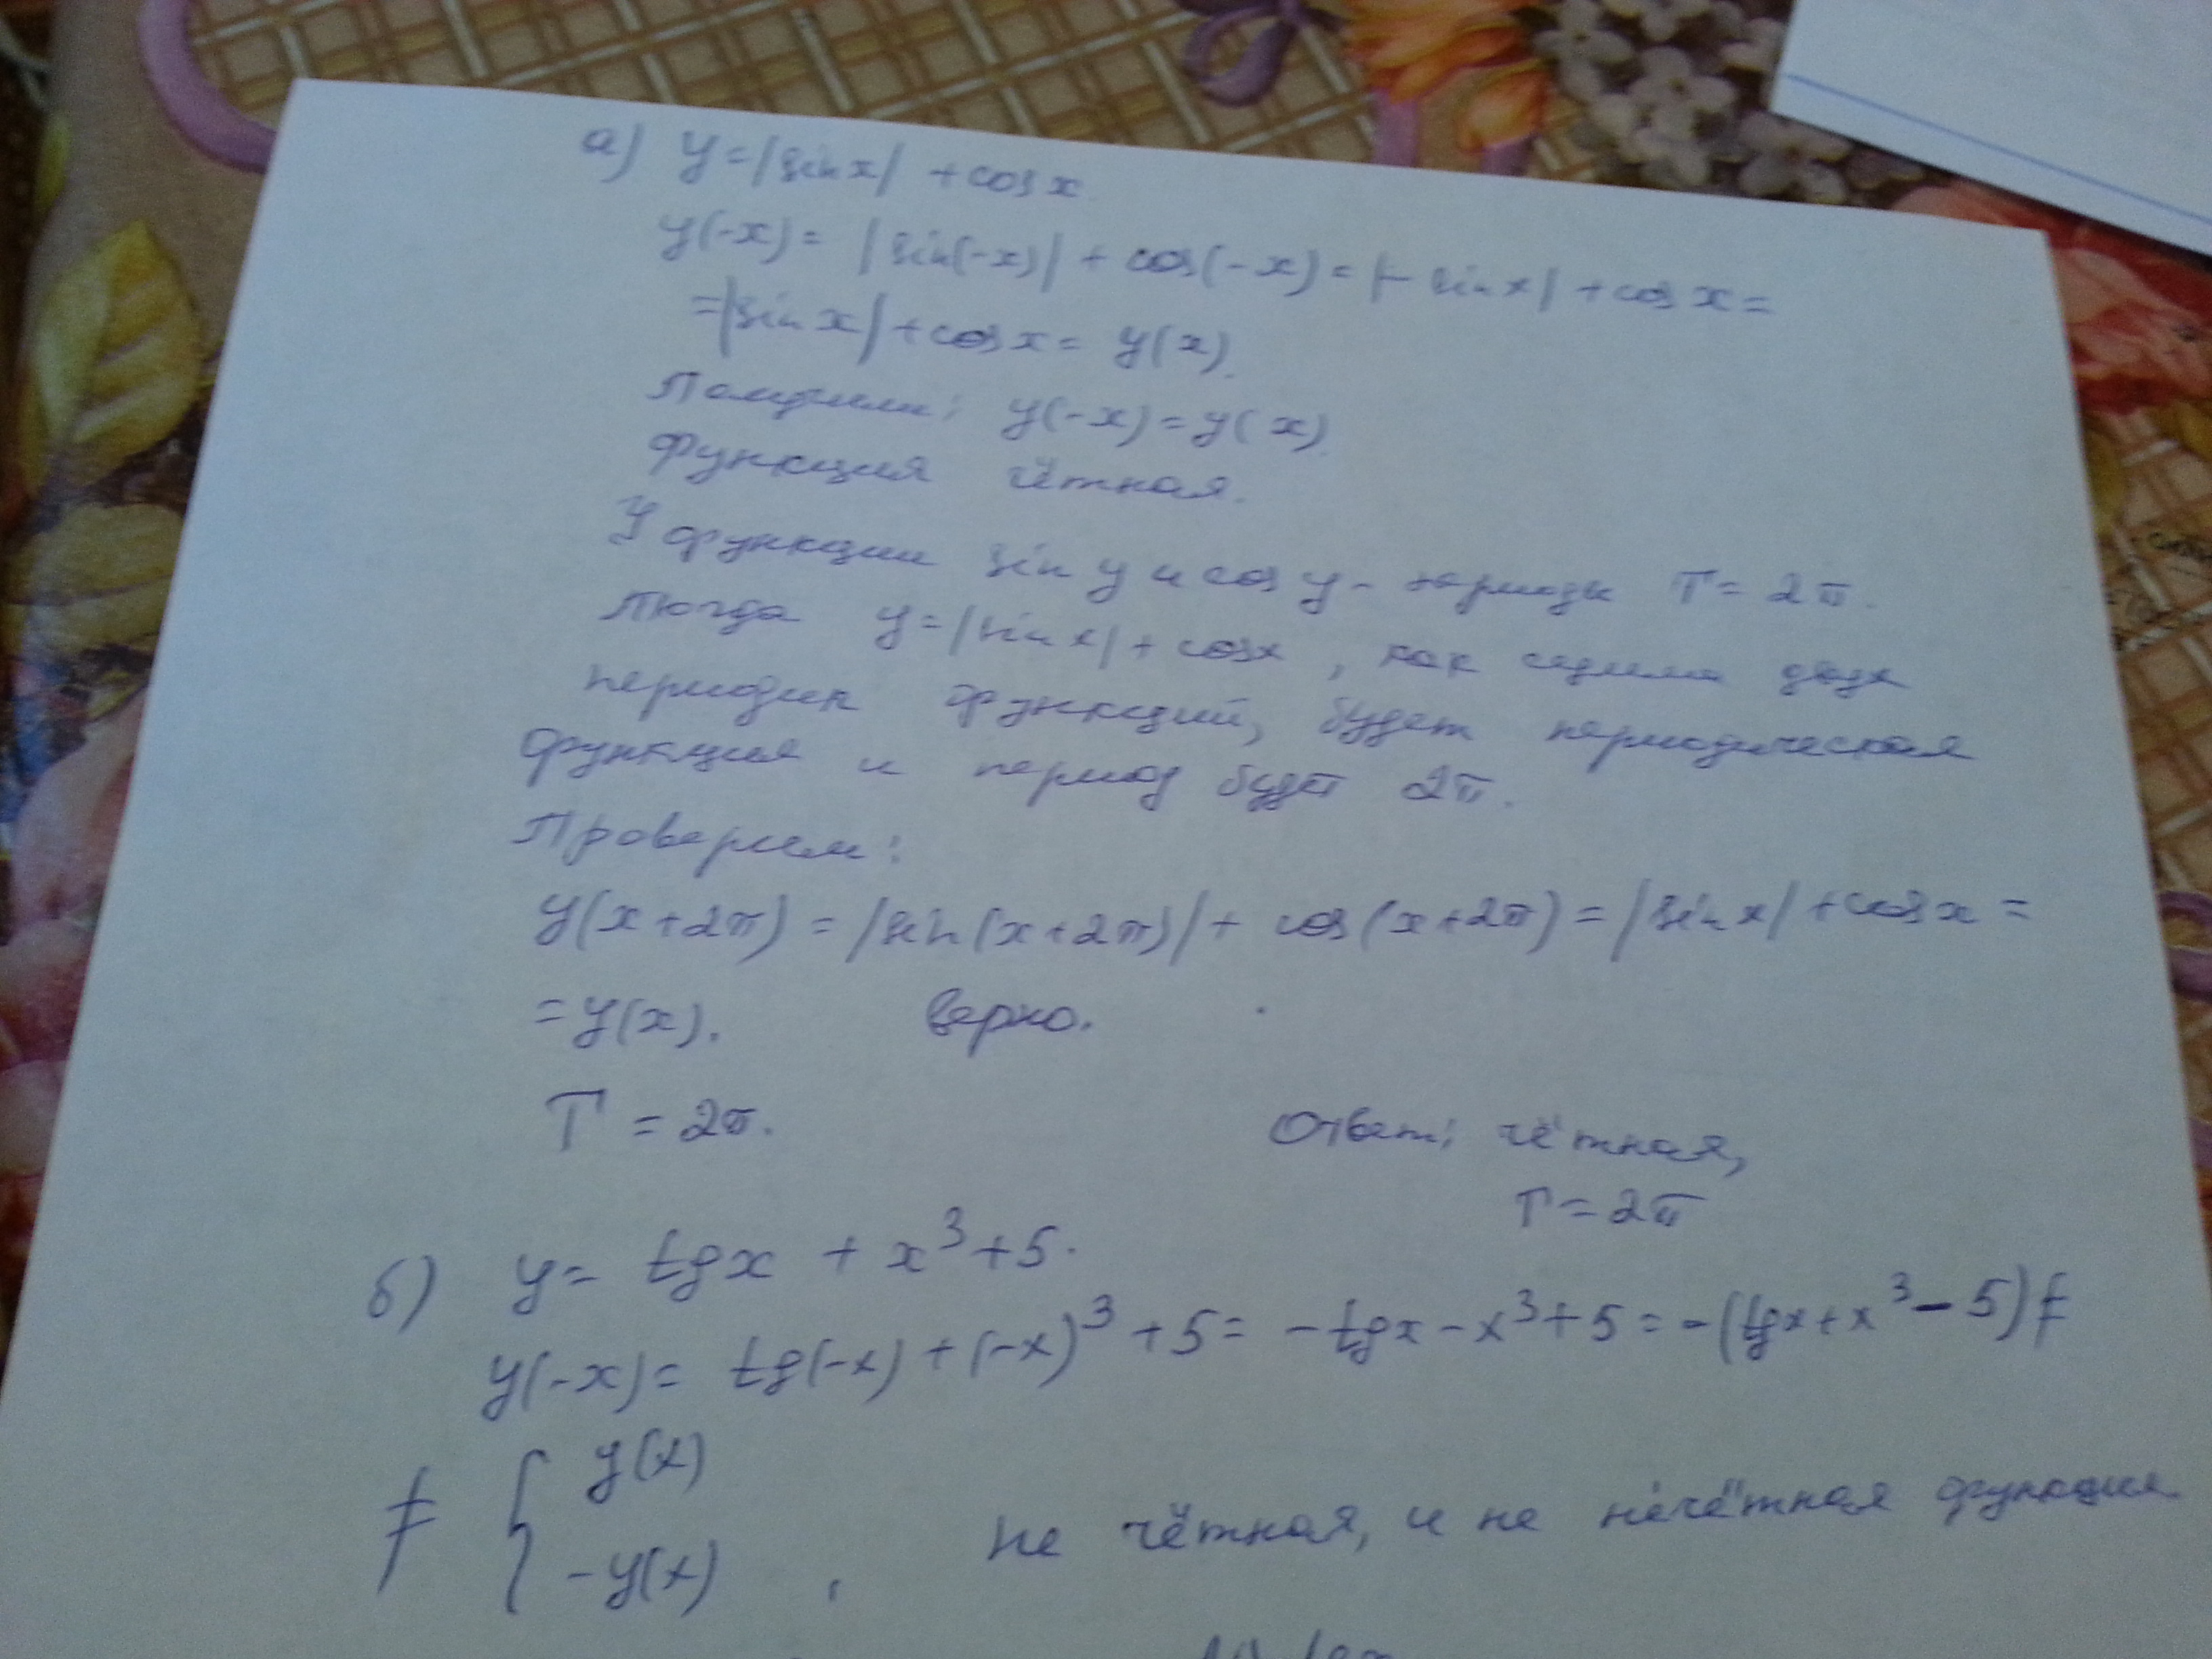 а) y=|sin x| + cos x.
y(-x) = |sin(-x)| + cos(-x) = |- sin x| + cos x =
=|sin x| + cos x = y(x).
Получили: y(-x) = y(x).
Функция чётная.
У функции sin y и cos y - периоды T = 2π.
Тогда y = |sin x| + cos x, как сумма двух
периодич функций, будет периодическая
функция и период будет 2π.
Проверяем:
y(x+2π) = |sin(x+2π)| + cos(x+2π) = |sin x| + cos x =
= y(x). верно.
T = 2π. Ответ: чётная,
T = 2π
б) y = tg x + x³ + 5.
y(-x) = tg(-x) + (-x)³ + 5 = - tg x - x³ + 5 = - (tg x + x³ - 5) ≠
≠ { y(x)
-y(x) , не чётная, и не нечётная функция